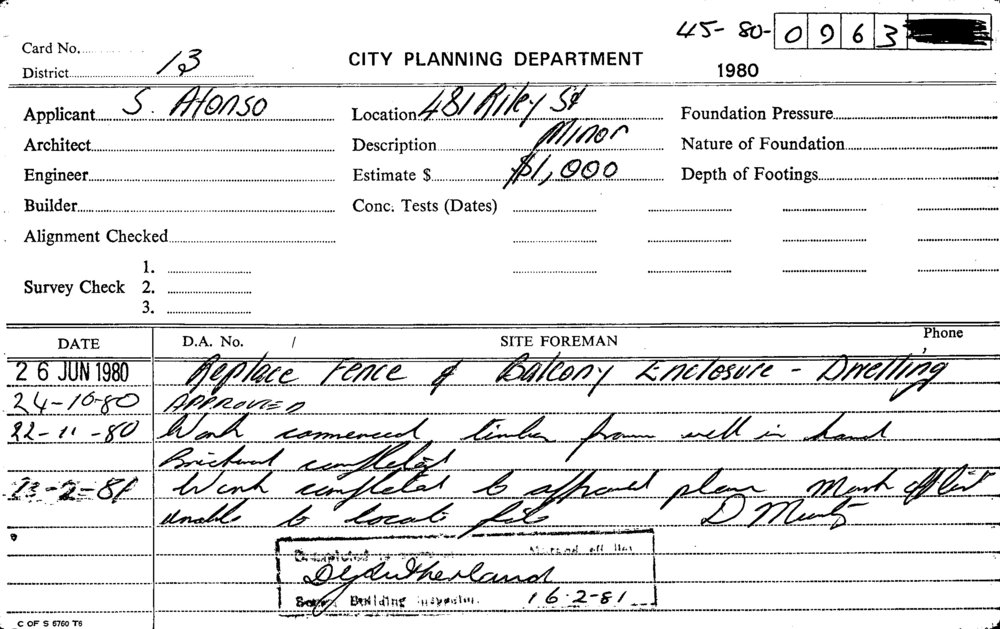 45-80-0963
Card No.
District 13
CITY PLANNING DEPARTMENT
1980
Applicant S. Afonso
Location 481 Riley St
Foundation Pressure
Architect
Description Minor
Nature of Foundation
Engineer
Estimate $ $1,000
Depth of Footings
Builder
Conc. Tests (Dates)
Alignment Checked
Survey Check 1.
2.
3.
DATE D.A. No. / SITE FOREMAN Phone
26 JUN 1980 Replace Fence & Balcony Enclosure - Dwelling
24-10-80 APPROVED
22-11-80 Work commenced timber frame well in hand
Brickwork completed
13-2-81 Work completed to approved plan Mark off list
unable to locate file D
Completed
Marked off list
Sutherland
Building Inspector. 16-2-81
C OF S 6760 T6